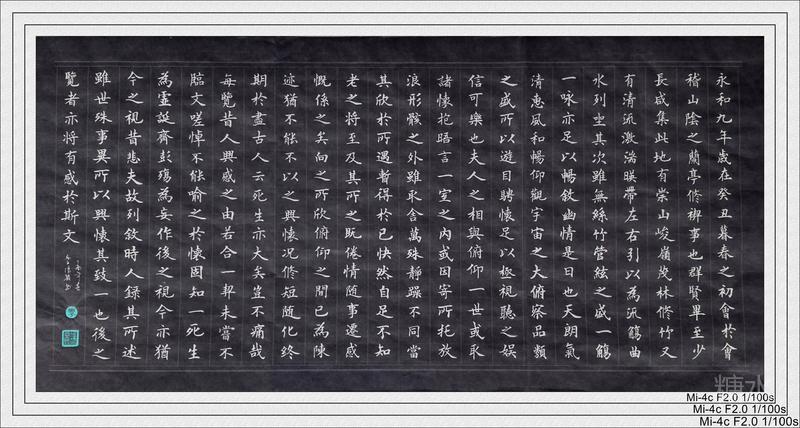 永和九年歲在癸丑暮春之初會於會
稽山陰之蘭亭修禊事也群賢畢至少
長咸集此地有崇山峻嶺茂林修竹又
有清流激湍暎帶左右引以為流觴曲
水列坐其次雖無絲竹管絃之盛一觴
一咏亦足以暢敘幽情是日也天朗氣
清惠風和暢仰觀宇宙之大俯察品類
之盛所以遊目騁懷足以極視聽之娛
信可樂也夫人之相與俯仰一世或取
諸懷抱晤言一室之內或因寄所托放
浪形骸之外雖取舍萬殊靜躁不同當
其欣於所遇暫得於己快然自足不知
老之將至及其所之既倦情隨事遷感
慨係之矣向之所欣俯仰之間已為陳
迹猶不能不以之興懷況修短隨化終
期於盡古人云死生亦大矣豈不痛哉
每覽昔人興感之由若合一契未嘗不
臨文嗟悼不能喻之於懷固知一死生
為虛誕齊彭殤為妄作後之視今亦猶
今之視昔悲夫故列敘時人錄其所述
雖世殊事異所以興懷其致一也後之
覽者亦將有感於斯文
糖水
Mi-4c F2.0 1/100s
Mi-4c F2.0 1/100s
Mi-4c F2.0 1/100s